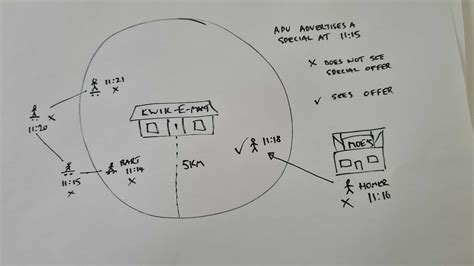 APU ADVERTISES A
SPECIAL AT 11:15
X DOES NOT SEE
SPECIAL OFFER
✓ SEES OFFER
11:21
X
KWIK-E-MART
11:20
X
BART
11:14
X
11:15
X
5KM
✓ 11:18
MOE'S
HOMER
X 11:16